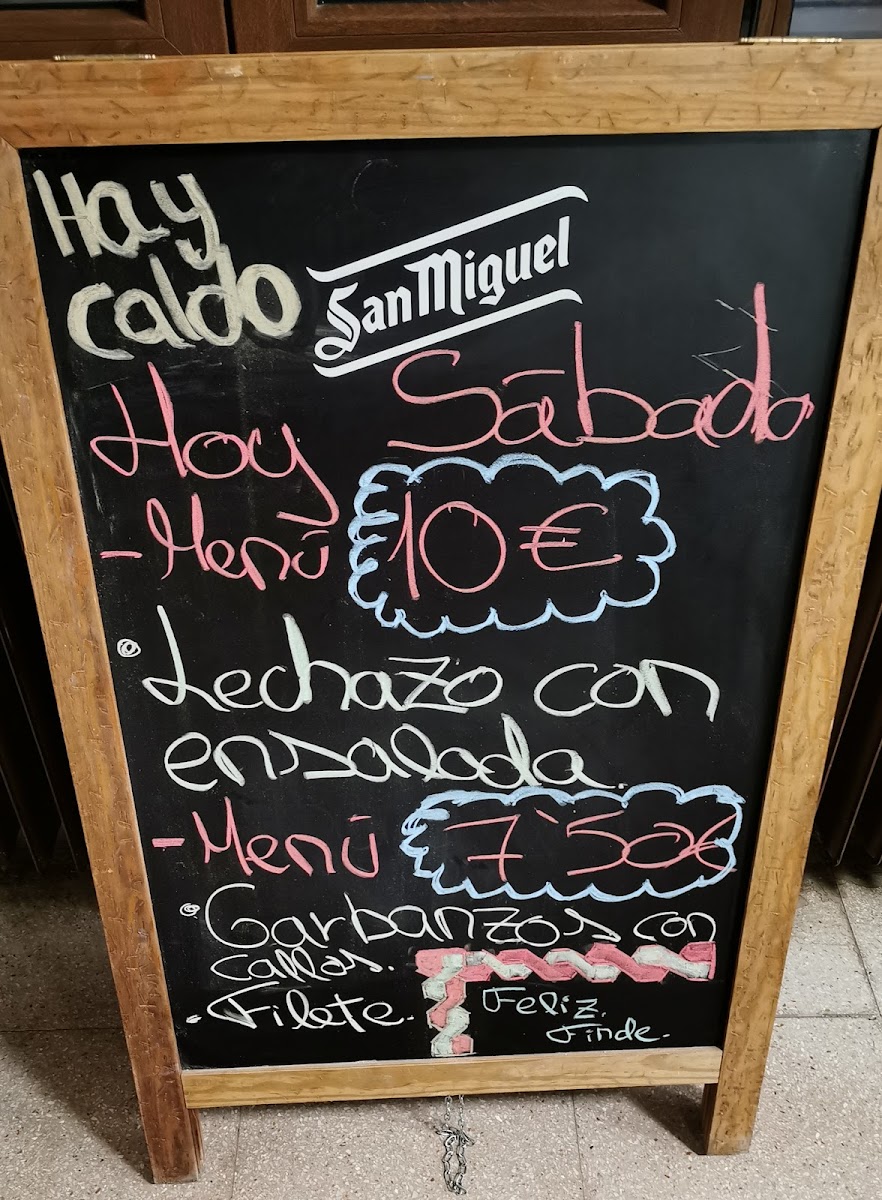 Hay
caldo
San Miguel
Hoy Sábado
- Menú 10€
Lechazo con
ensalada.
- Menú 7'50€
Garbanzos con
callos.
. Filete.
Feliz.
Finde.